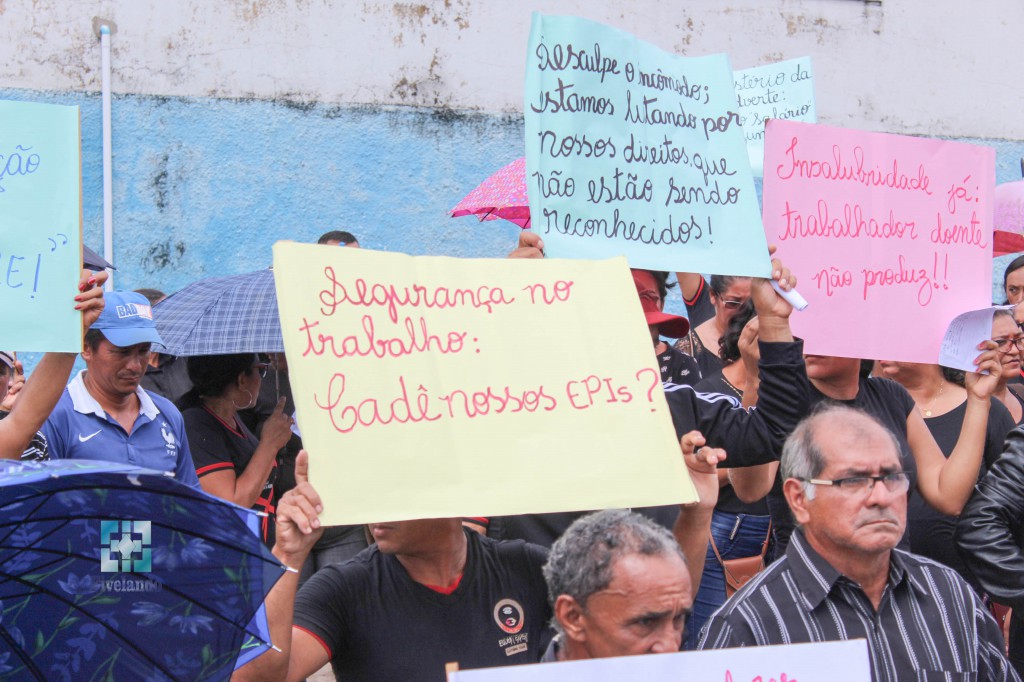 ção
E!"
Desculpe o incômodo;
estamos lutando por
nossos direitos, que
não estão sendo
reconhecidos!
stério da
dverte:
o salário
Insalubridade já:
trabalhador doente
não produz!!
Segurança no
trabalho:
Cadê nossos EPIs?
BAD
ivelando